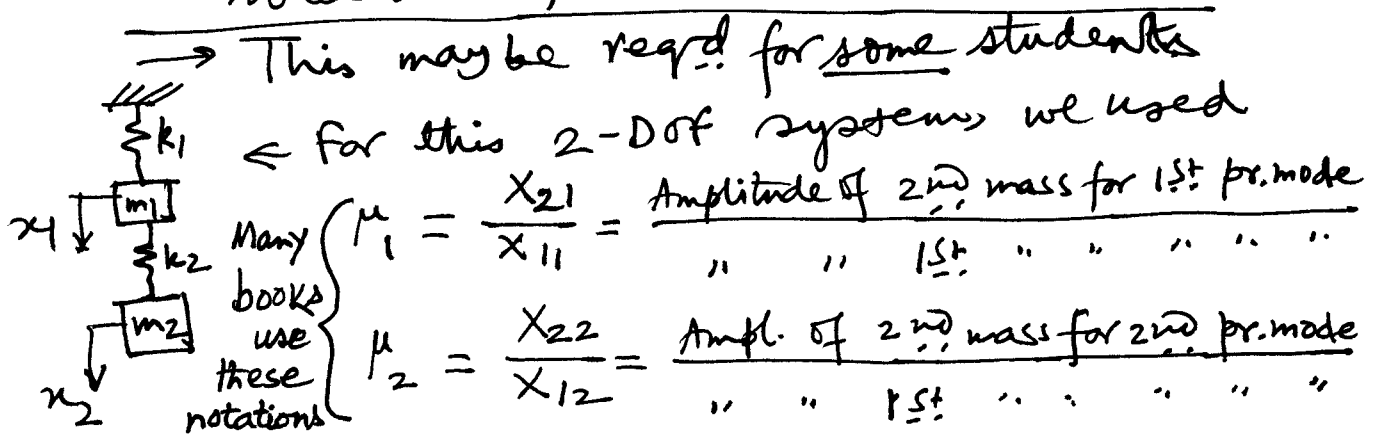 → This may be reqd. for some students
← For this 2-DOF system, we used
k1
m1
x1
k2
m2
x2
Many books use these notations
μ1 = X21 / X11 = Amplitude of 2nd mass for 1st pr. mode / " " 1st " " " " "
μ2 = X22 / X12 = Ampl. of 2nd mass for 2nd pr. mode / " " 1st " " " " "